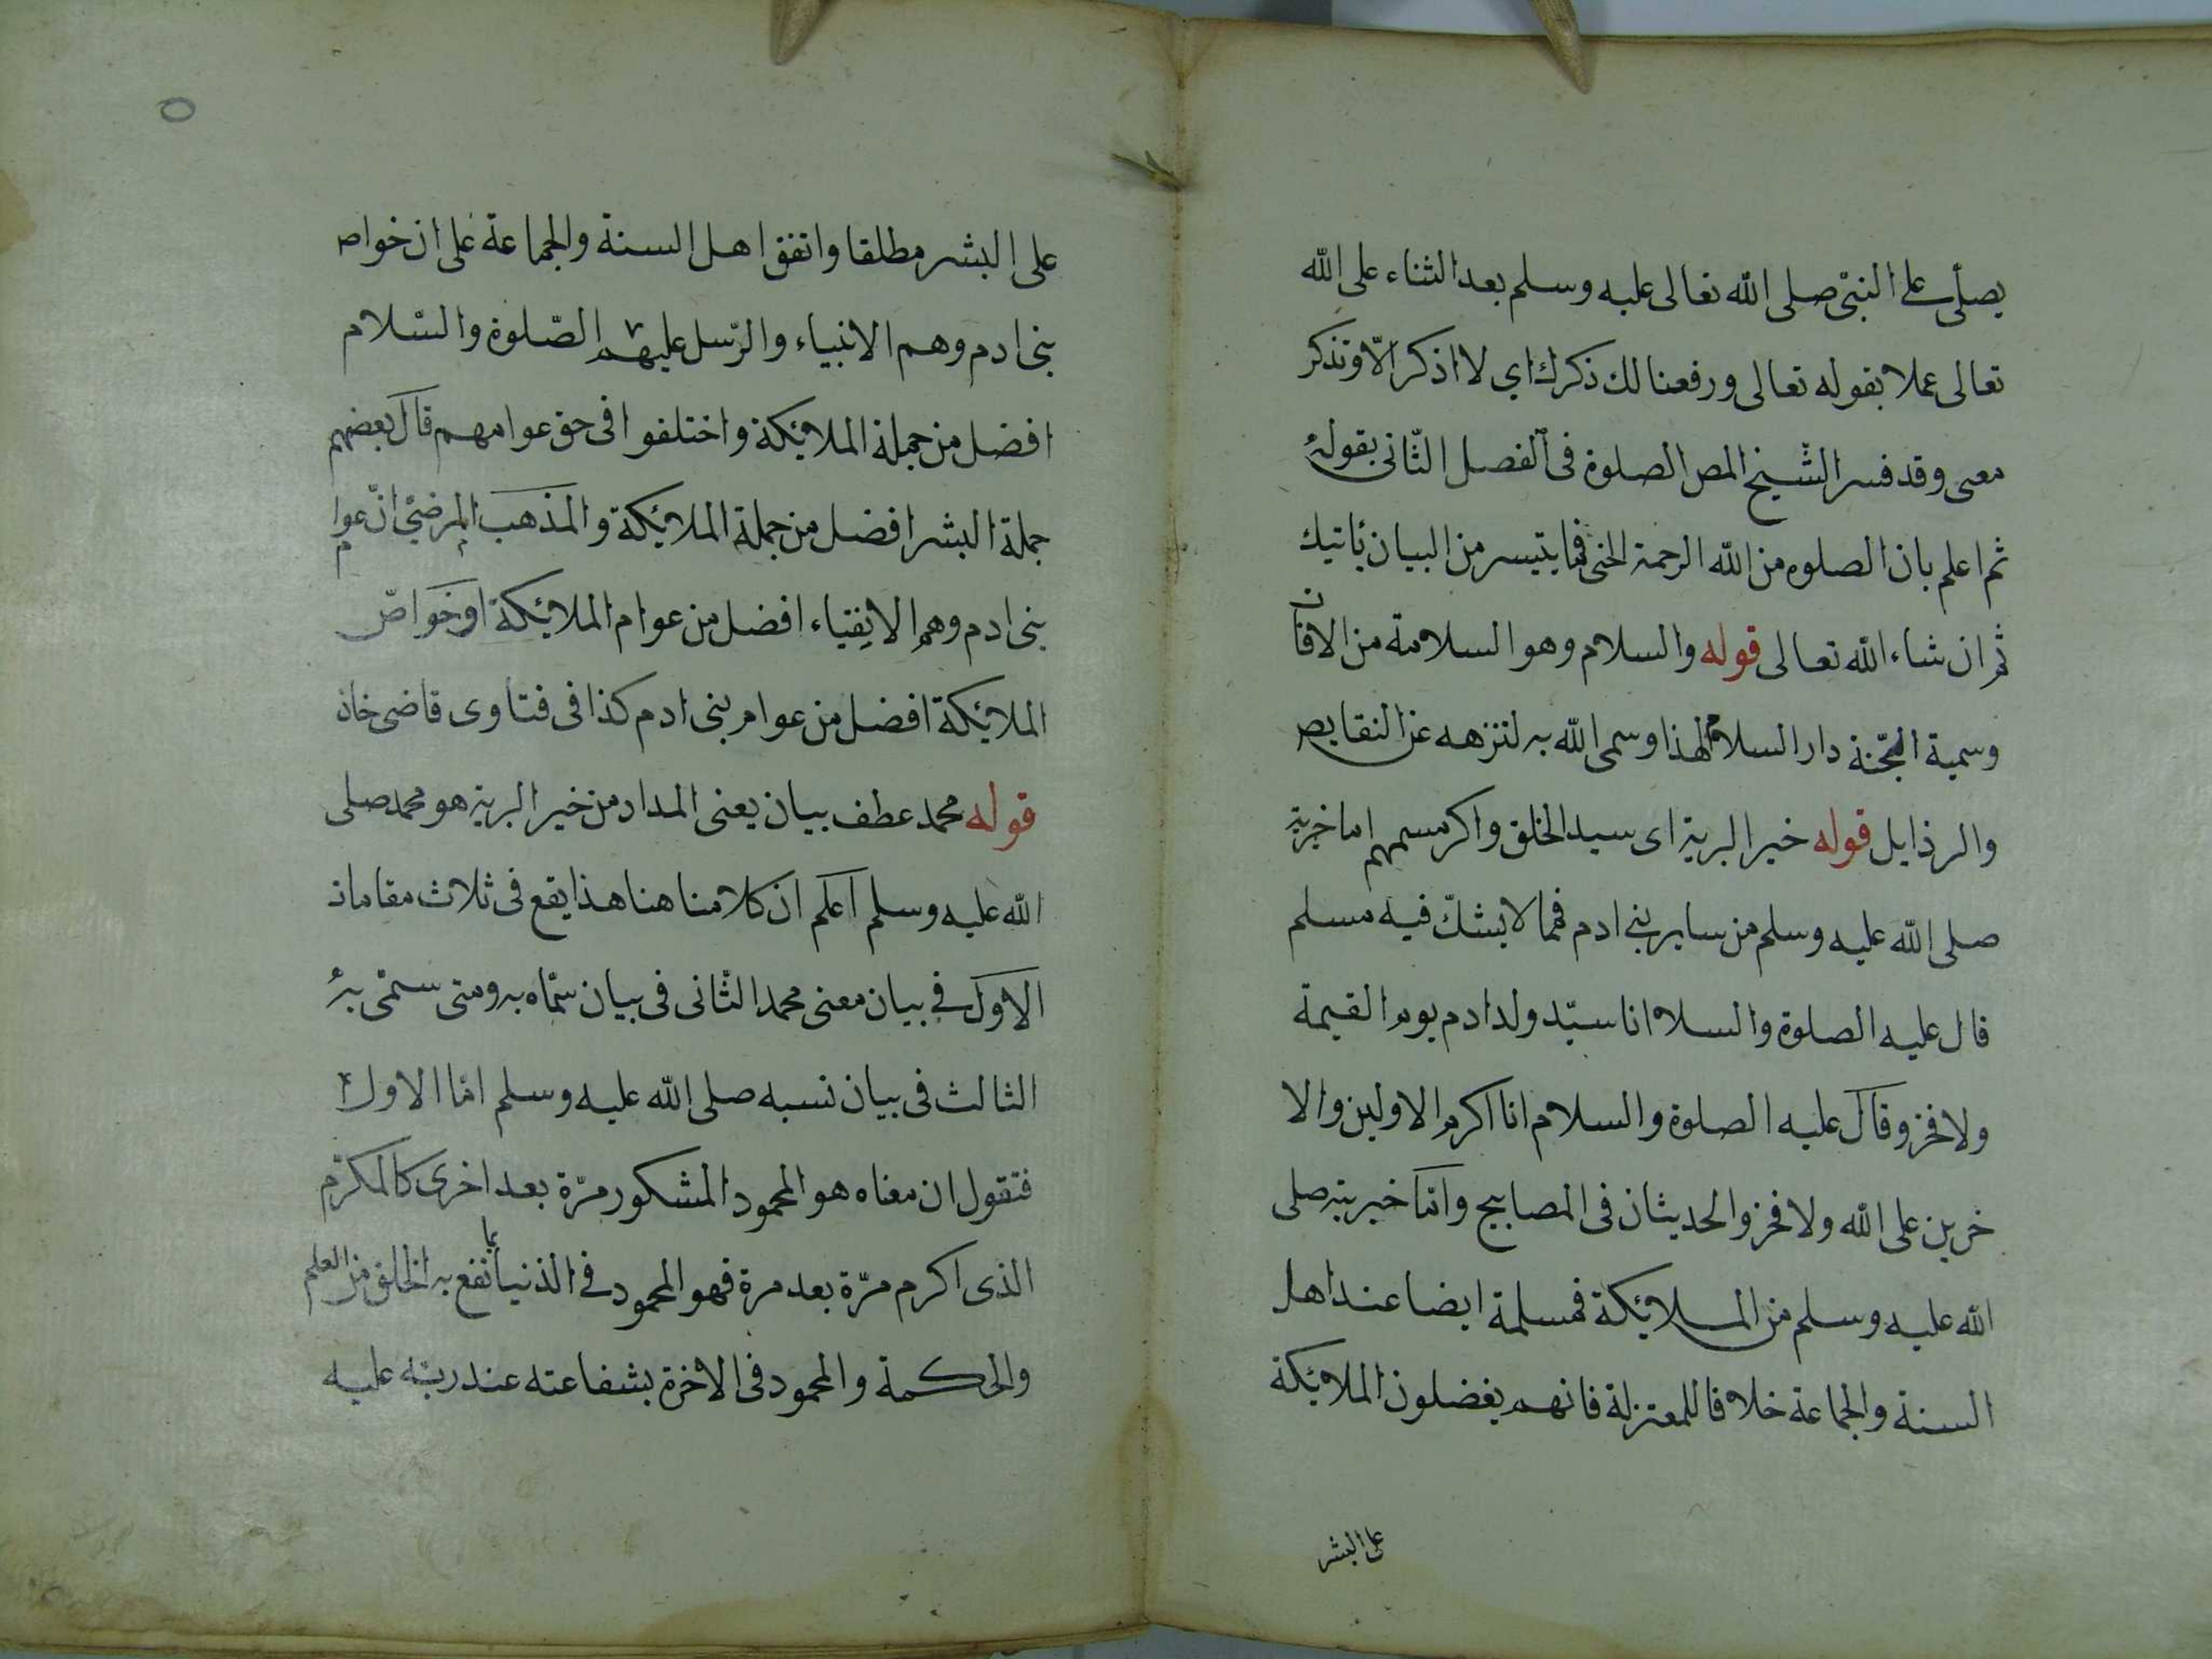 يصلى على النبى صلى الله تعالى عليه وسلم بعد الثناء على الله
تعالى عملا بقوله تعالى ورفعنا لك ذكرك اي لا اذكر الّا وتذكر
معى وقد فسر الشيخ المص الصلوة فى الفصل الثّانى بقوله
ثم اعلم بان الصلوه من الله الرحمة الخ فما يتيسر من البيان يأتيك
ثم ان شاء الله تعالى قوله والسلام وهو السلامة من الافات
وسمية الجّنة دار السلام لهذا وسمى الله به لتنزهه عن النقايص
والرذايل قوله خير البرية اى سيد الخلق واكرمهم اما خيرية
صلى الله عليه وسلم من ساير بنى ادم فمما لا يشكّ فيه مسلم
قال عليه الصلوة والسلام انا سيّد ولد ادم يوم القيمة
ولا فخر وقال عليه الصلوة والسلام انا اكرم الاولين والا
خرين على الله ولا فخر والحديثان فى المصابيح وامّا خيريته صلى
الله عليه وسلم من الملايكة فمسلمة ايضا عند اهل
السنة والجماعة خلافا للمعتزلة فانهم يفضلون الملائكة
على البشر
على البشر مطلقا واتفق اهل السنة والجماعة على ان خواص
بنى ادم وهم الانبياء والرّسل عليهم الصّلوة والسّلام
افضل من جملة الملائكة واختلفوا فى حق عوامهم قال بعضهم
جملة البشر افضل من جملة الملائكة والمذهب المرضىّ انّ عوام
بنى ادم وهم الاتقياء افضل من عوام الملائكة او خواصّ
الملائكة افضل من عوام بنى ادم كذا فى فتاوى قاضى خان
قوله محمد عطف بيان يعنى المداد من خير البرية هو محمد صلى
الله عليه وسلم اعلم ان كلامنا هنا هذا يقع فى ثلاث مقامات
الاوّل فى بيان معنى محمد الثّانى فى بيان سمّاه به ومتى سمّى به
الثالث فى بيان نسبه صلى الله عليه وسلم امّا الاول
فتقول ان معناه هو المحمود المشكور مرّة بعد اخرى كالمكرّم
الذى اكرم مرّة بعد مرة فهو المحمود فى الدنيا بما نفع به الخلق من العلم
والحكمة والمحمود فى الاخرة بشفاعته عند ربّه عليه